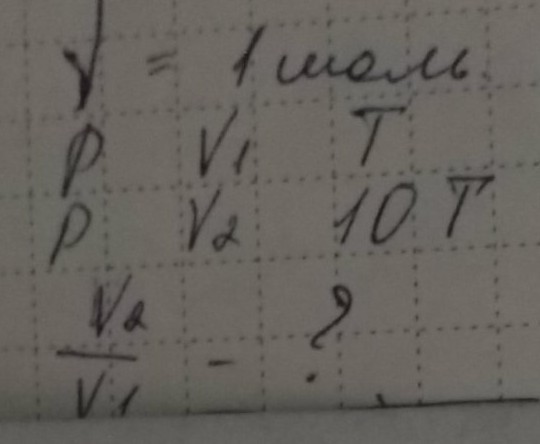 ν = 1 моль
P V₁ T
P V₂ 10 T
V₂
V₁ - ?